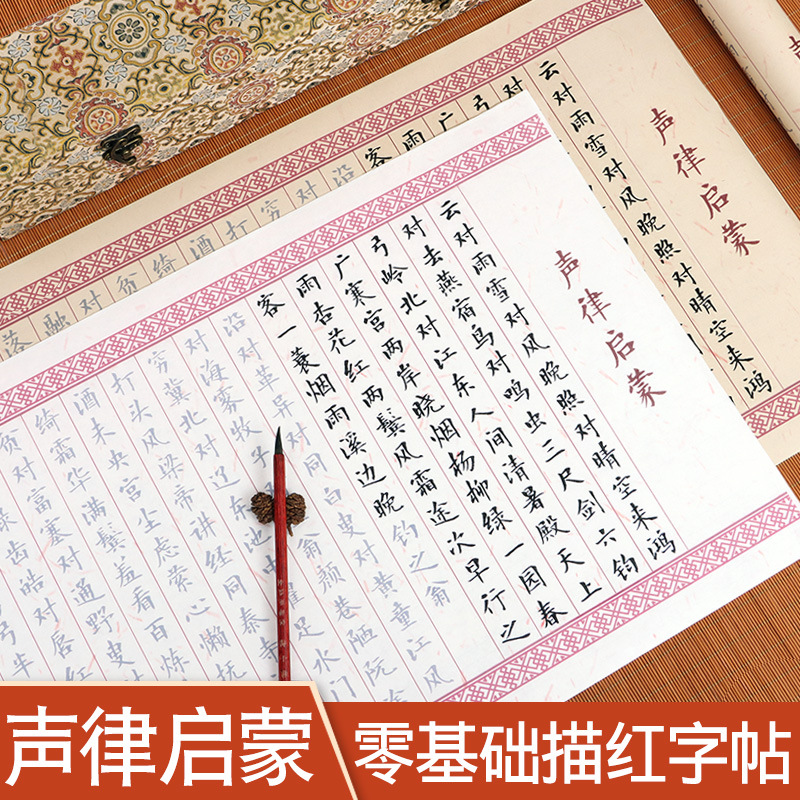 声律启蒙
云对雨雪对风晚照对晴空来鸿
对
弓
广
雨
客
沿
对
穷
打
酒
绮
贫
对
融
落
声律启蒙
云对雨雪对风晚照对晴空来鸿
对去燕宿鸟对鸣虫三尺剑六钧
弓岭北对江东人间清暑殿天上
广寒宫两岸晓烟杨柳绿一园春
雨杏花红两鬓风霜途次早行之
客一蓑烟雨溪边晚钓之翁
沿对革异对同白叟对黄童江风
对海雾牧子翁颜巷陋阮途
穷冀北对辽东池中濯足水门
打头风梁帝讲经同泰寺
酒未央宫尘虑萦心懒抚
绮霜华满鬓羞看百炼
贫对富塞对通野叟对
绿齿皓对唇
弓半
声律启蒙
零基础描红字帖